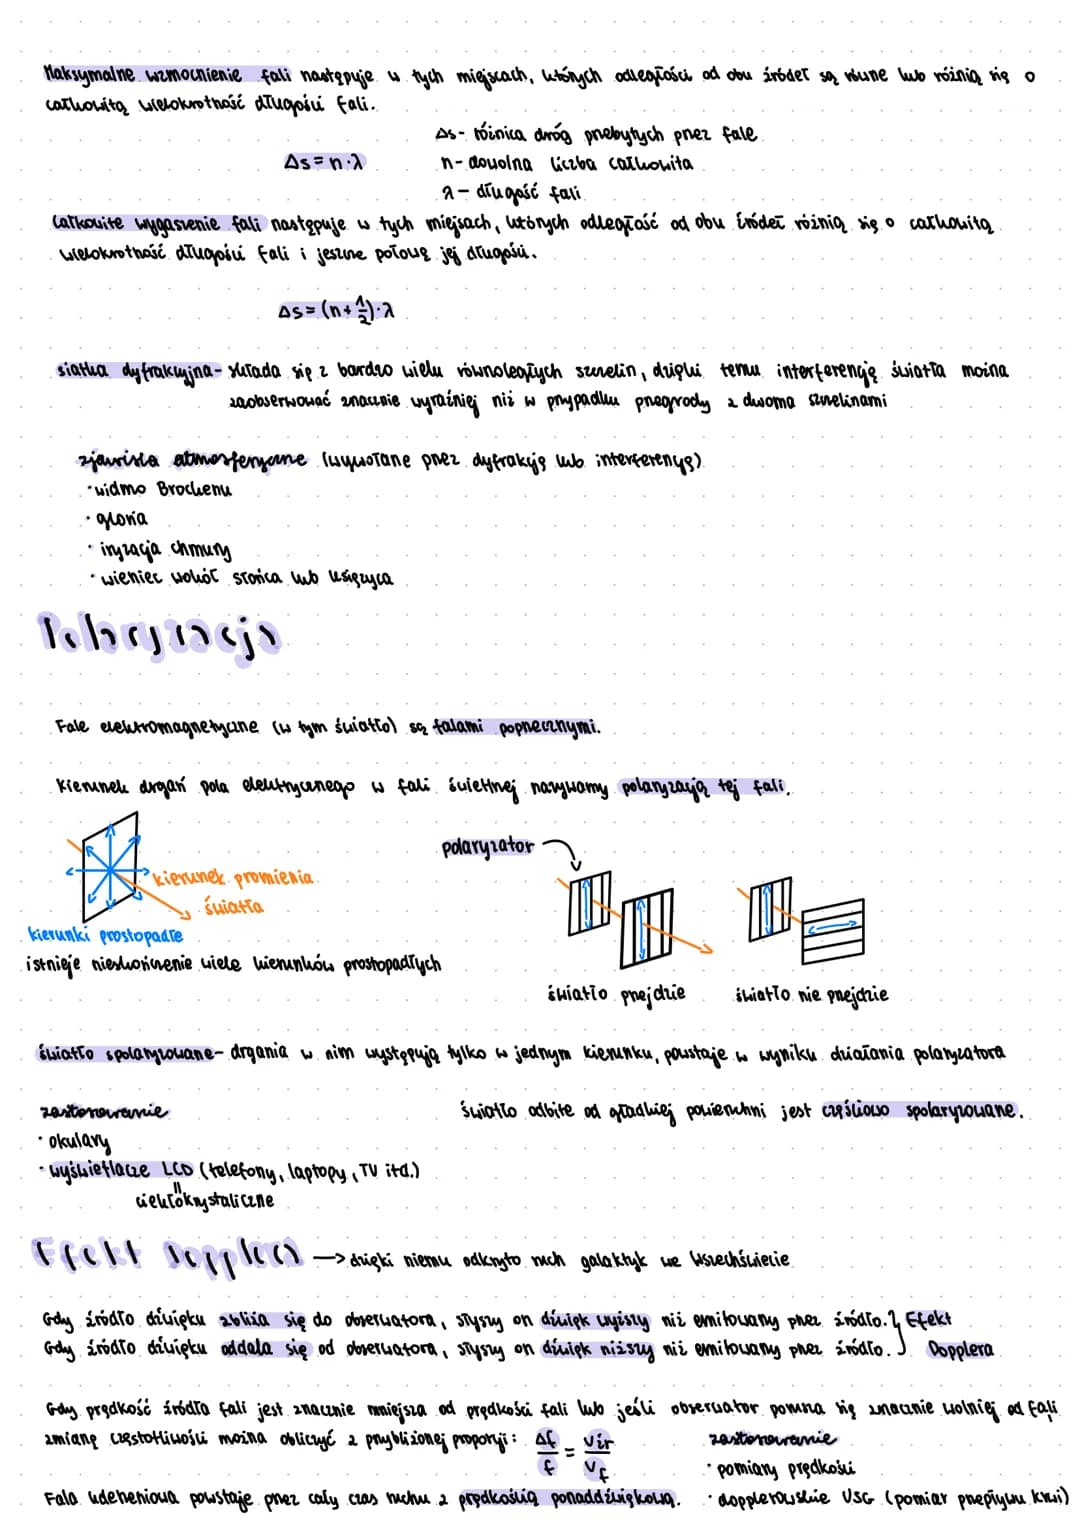 Maksymalne wzmocnienie fali następuje w tych miejscach, których odległości od obu źródeł są równe lub różnią się o
całkowitą wielokrotność długości fali.
Δs - różnica dróg przebytych przez fale
Δs = n·λ
n - dowolna liczba całkowita
λ - długość fali
Całkowite wygaszenie fali następuje w tych miejsach, których odległość od obu źródeł różnią się o całkowitą
wielokrotność długości fali i jeszcze połowę jej długości.
Δs = (n + 1/2)·λ
siatka dyfrakcyjna - składa się z bardzo wielu równoległych szczelin, dzięki temu interferencję światła można
zaobserwować znacznie wyraźniej niż w przypadku przegrody z dwoma szczelinami
zjawiska atmosferyczne (wywołane przez dyfrakcję lub interferencję)
· widmo Brockenu
· gloria
· iryzacja chmury
· wieniec wokół słońca lub księżyca
Polaryzacja
Fale elektromagnetyczne (w tym światło) są falami poprzecznymi.
Kierunek drgań pola elektrycznego w fali świetlnej nazywamy polaryzacją tej fali.
polaryzator
kierunek promienia
światła
kierunki prostopadłe
istnieje nieskończenie wiele kierunków prostopadłych
światło przejdzie
światło nie przejdzie
światło spolaryzowane - drgania w nim występują tylko w jednym kierunku, powstaje w wyniku działania polaryzatora
zastosowanie
światło odbite od gładkiej powierzchni jest częściowo spolaryzowane.
· okulary
· wyświetlacze LCD (telefony, laptopy, TV itd.)
ciekłokrystaliczne
Efekt Dopplera → dzięki niemu odkryto ruch galaktyk we Wszechświecie
Gdy źródło dźwięku zbliża się do obserwatora, słyszy on dźwięk wyższy niż emitowany przez źródło. } Efekt
Gdy źródło dźwięku oddala się od obserwatora, słyszy on dźwięk niższy niż emitowany przez źródło. Dopplera
Gdy prędkość źródła fali jest znacznie mniejsza od prędkości fali lub jeśli obserwator porusza się znacznie wolniej od fali
zmianę częstotliwości można obliczyć z przybliżonej proporcji: Δf/f = vźr/vf
zastosowanie
· pomiary prędkości
Fala uderzeniowa powstaje przez cały czas ruchu z prędkością ponaddźwiękową.
· dopplerowskie USG (pomiar przepływu krwi)